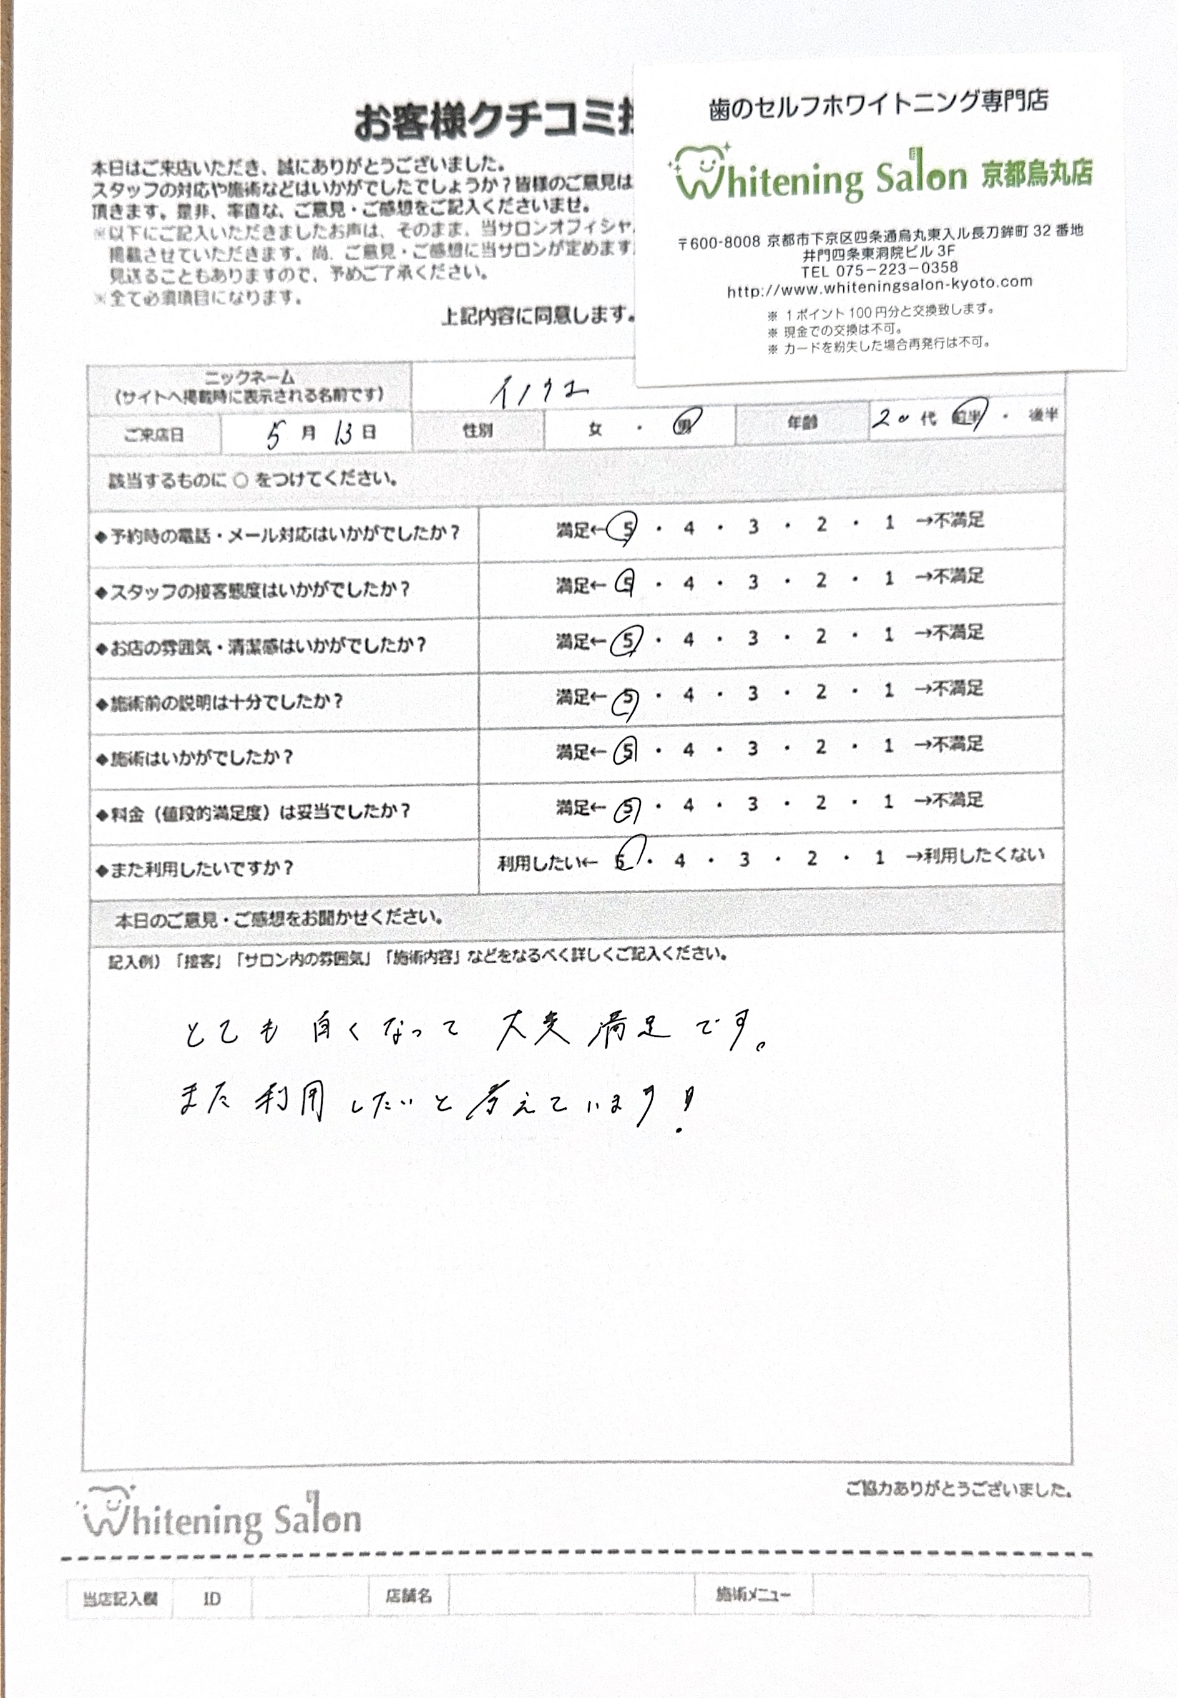 お客様クチコミ
本日はご来店いただき、誠にありがとうございました。
スタッフの対応や施術などはいかがでしたでしょうか？皆様のご意見は
頂きます。是非、率直な、ご意見・ご感想をご記入くださいませ。
※以下にご記入いただきましたお声は、そのまま、当サロンオフィシャ
掲載させていただきます。尚、ご意見・ご感想に当サロンが定めます
見送ることもありますので、予めご了承ください。
※全て必須項目になります。
上記内容に同意します。
歯のセルフホワイトニング専門店
Whitening Salon 京都烏丸店
〒600-8008 京都市下京区四条通烏丸東入ル長刀鉾町 32 番地
井門四条東洞院ビル 3F
TEL 075-223-0358
http://www.whiteningsalon-kyoto.com
※ 1ポイント100円分と交換致します。
※ 現金での交換は不可。
※ カードを紛失した場合再発行は不可。
ニックネーム
（サイトへ掲載時に表示される名前です） イノウエ
ご来店日 5月 13日 性別 女 ・ 男 年齢 20代 前半 ・ 後半
該当するものに ○ をつけてください。
◆予約時の電話・メール対応はいかがでしたか？ 満足← 5 ・ 4 ・ 3 ・ 2 ・ 1 →不満足
◆スタッフの接客態度はいかがでしたか？ 満足← 5 ・ 4 ・ 3 ・ 2 ・ 1 →不満足
◆お店の雰囲気・清潔感はいかがでしたか？ 満足← 5 ・ 4 ・ 3 ・ 2 ・ 1 →不満足
◆施術前の説明は十分でしたか？ 満足← 5 ・ 4 ・ 3 ・ 2 ・ 1 →不満足
◆施術はいかがでしたか？ 満足← 5 ・ 4 ・ 3 ・ 2 ・ 1 →不満足
◆料金（値段的満足度）は妥当でしたか？ 満足← 5 ・ 4 ・ 3 ・ 2 ・ 1 →不満足
◆また利用したいですか？ 利用したい← 5 ・ 4 ・ 3 ・ 2 ・ 1 →利用したくない
本日のご意見・ご感想をお聞かせください。
記入例）「接客」「サロン内の雰囲気」「施術内容」などをなるべく詳しくご記入ください。
とても白くなって大変満足です。
また利用したいと考えています！
ご協力ありがとうございました。
Whitening Salon
当店記入欄 ID 店舗名 施術メニュー